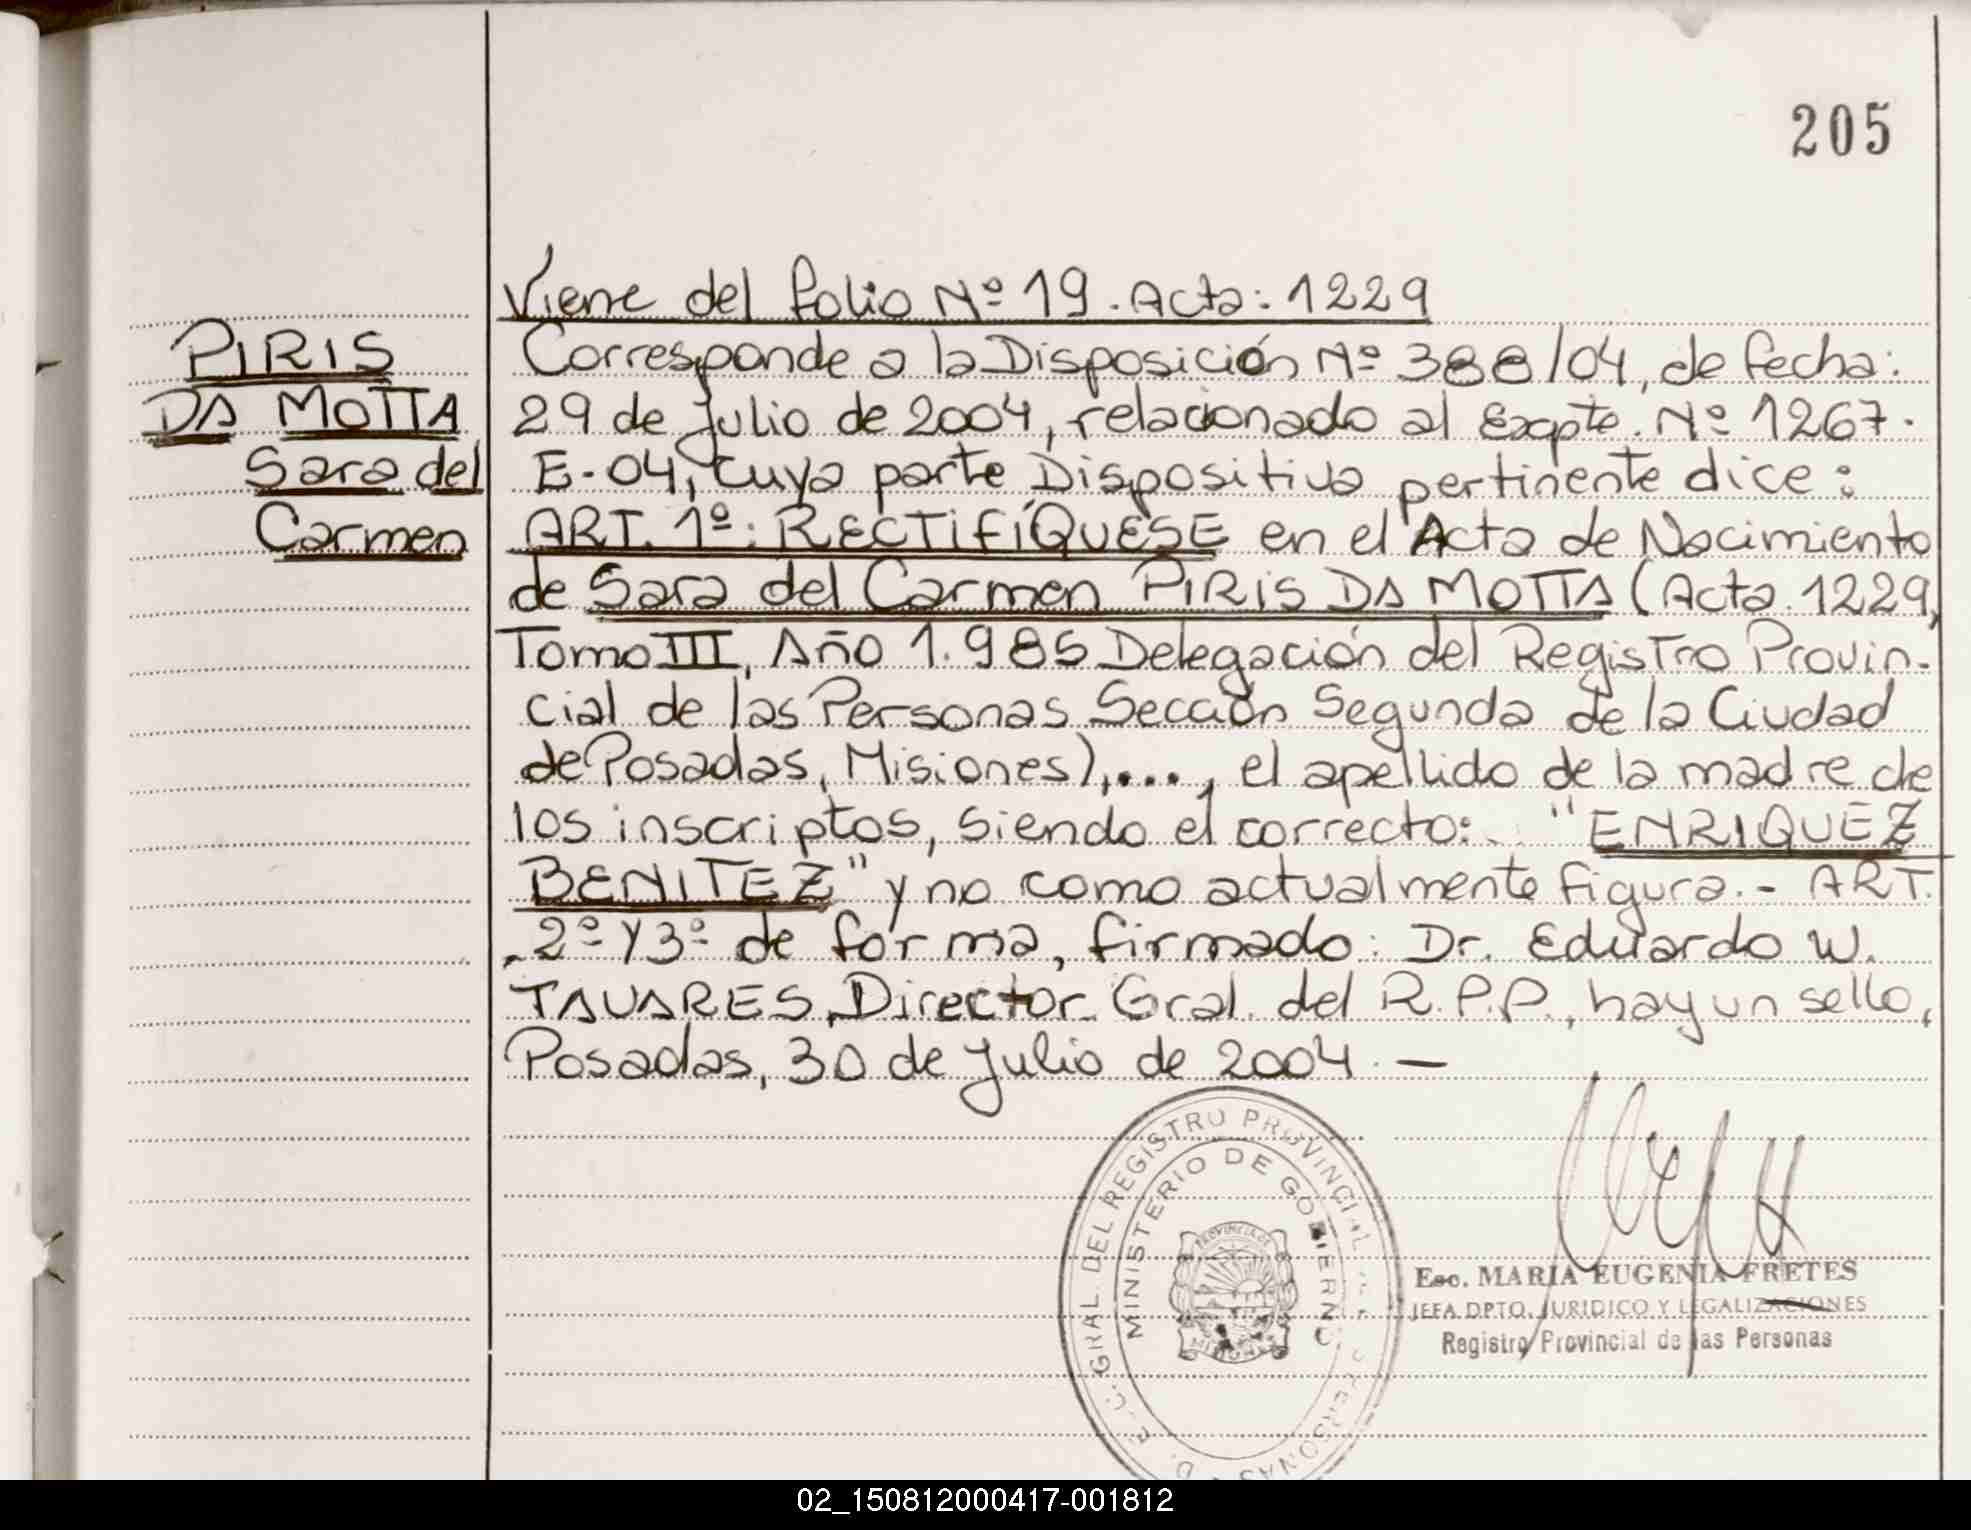 205
Viene del folio Nº 19. Acta: 1229
PIRIS
DA MOTTA
Sara del
Carmen
Corresponde a la Disposición Nº 388/04, de fecha:
29 de julio de 2004, relacionado al Expte. Nº 1267.
E-04, cuya parte Dispositiva pertinente dice:
ART. 1º: RECTIFÍQUESE en el Acta de Nacimiento
de Sara del Carmen PIRIS DA MOTTA (Acta 1229,
Tomo III, Año 1.985 Delegación del Registro Provin-
cial de las Personas Sección Segunda de la Ciudad
de Posadas, Misiones),..., el apellido de la madre de
los inscriptos, siendo el correcto: "ENRIQUEZ
BENITEZ" y no como actualmente figura.- ART.
2º y 3º de forma, firmado: Dr. Eduardo W.
TAVARES, Director Gral. del R.P.P., hay un sello,
Posadas, 30 de julio de 2004.—
GRAL. DEL REGISTRO PROVINCIAL PERSONAS
MINISTERIO DE GOBIERNO
PROVINCIA DE
MISIONES
Esc. MARIA EUGENIA FRETES
JEFA DPTO. JURIDICO Y LEGALIZACIONES
Registro Provincial de las Personas
02_150812000417-001812